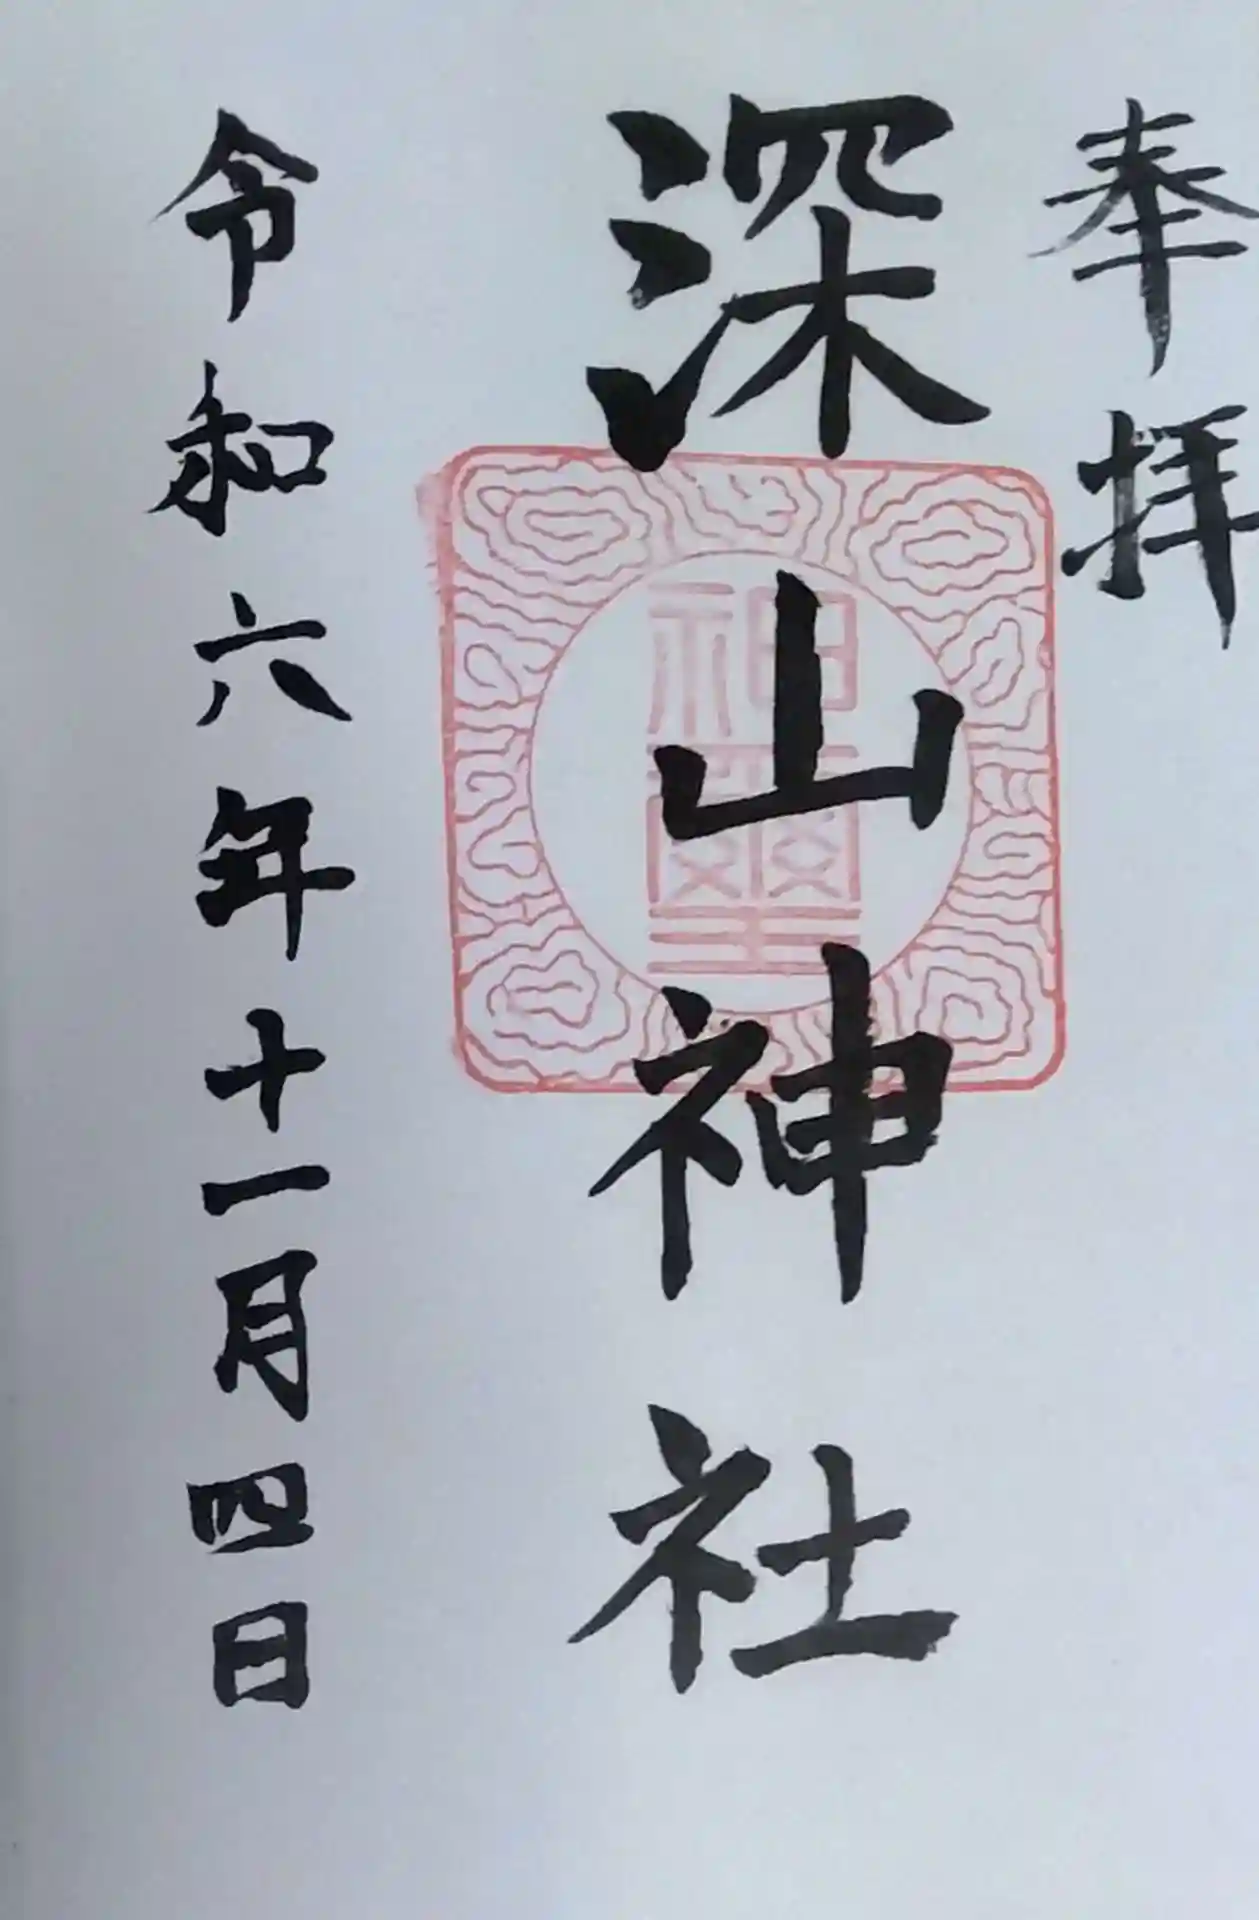 奉拝
深山神社
神璽
令和六年十一月四日